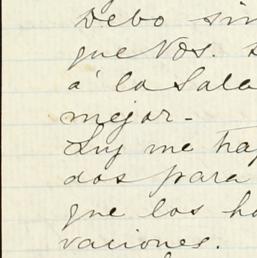 Debo sin
que Vos. 
á la Sala
mejor-
Luy me ha
dos para
que los ho
vaciones.